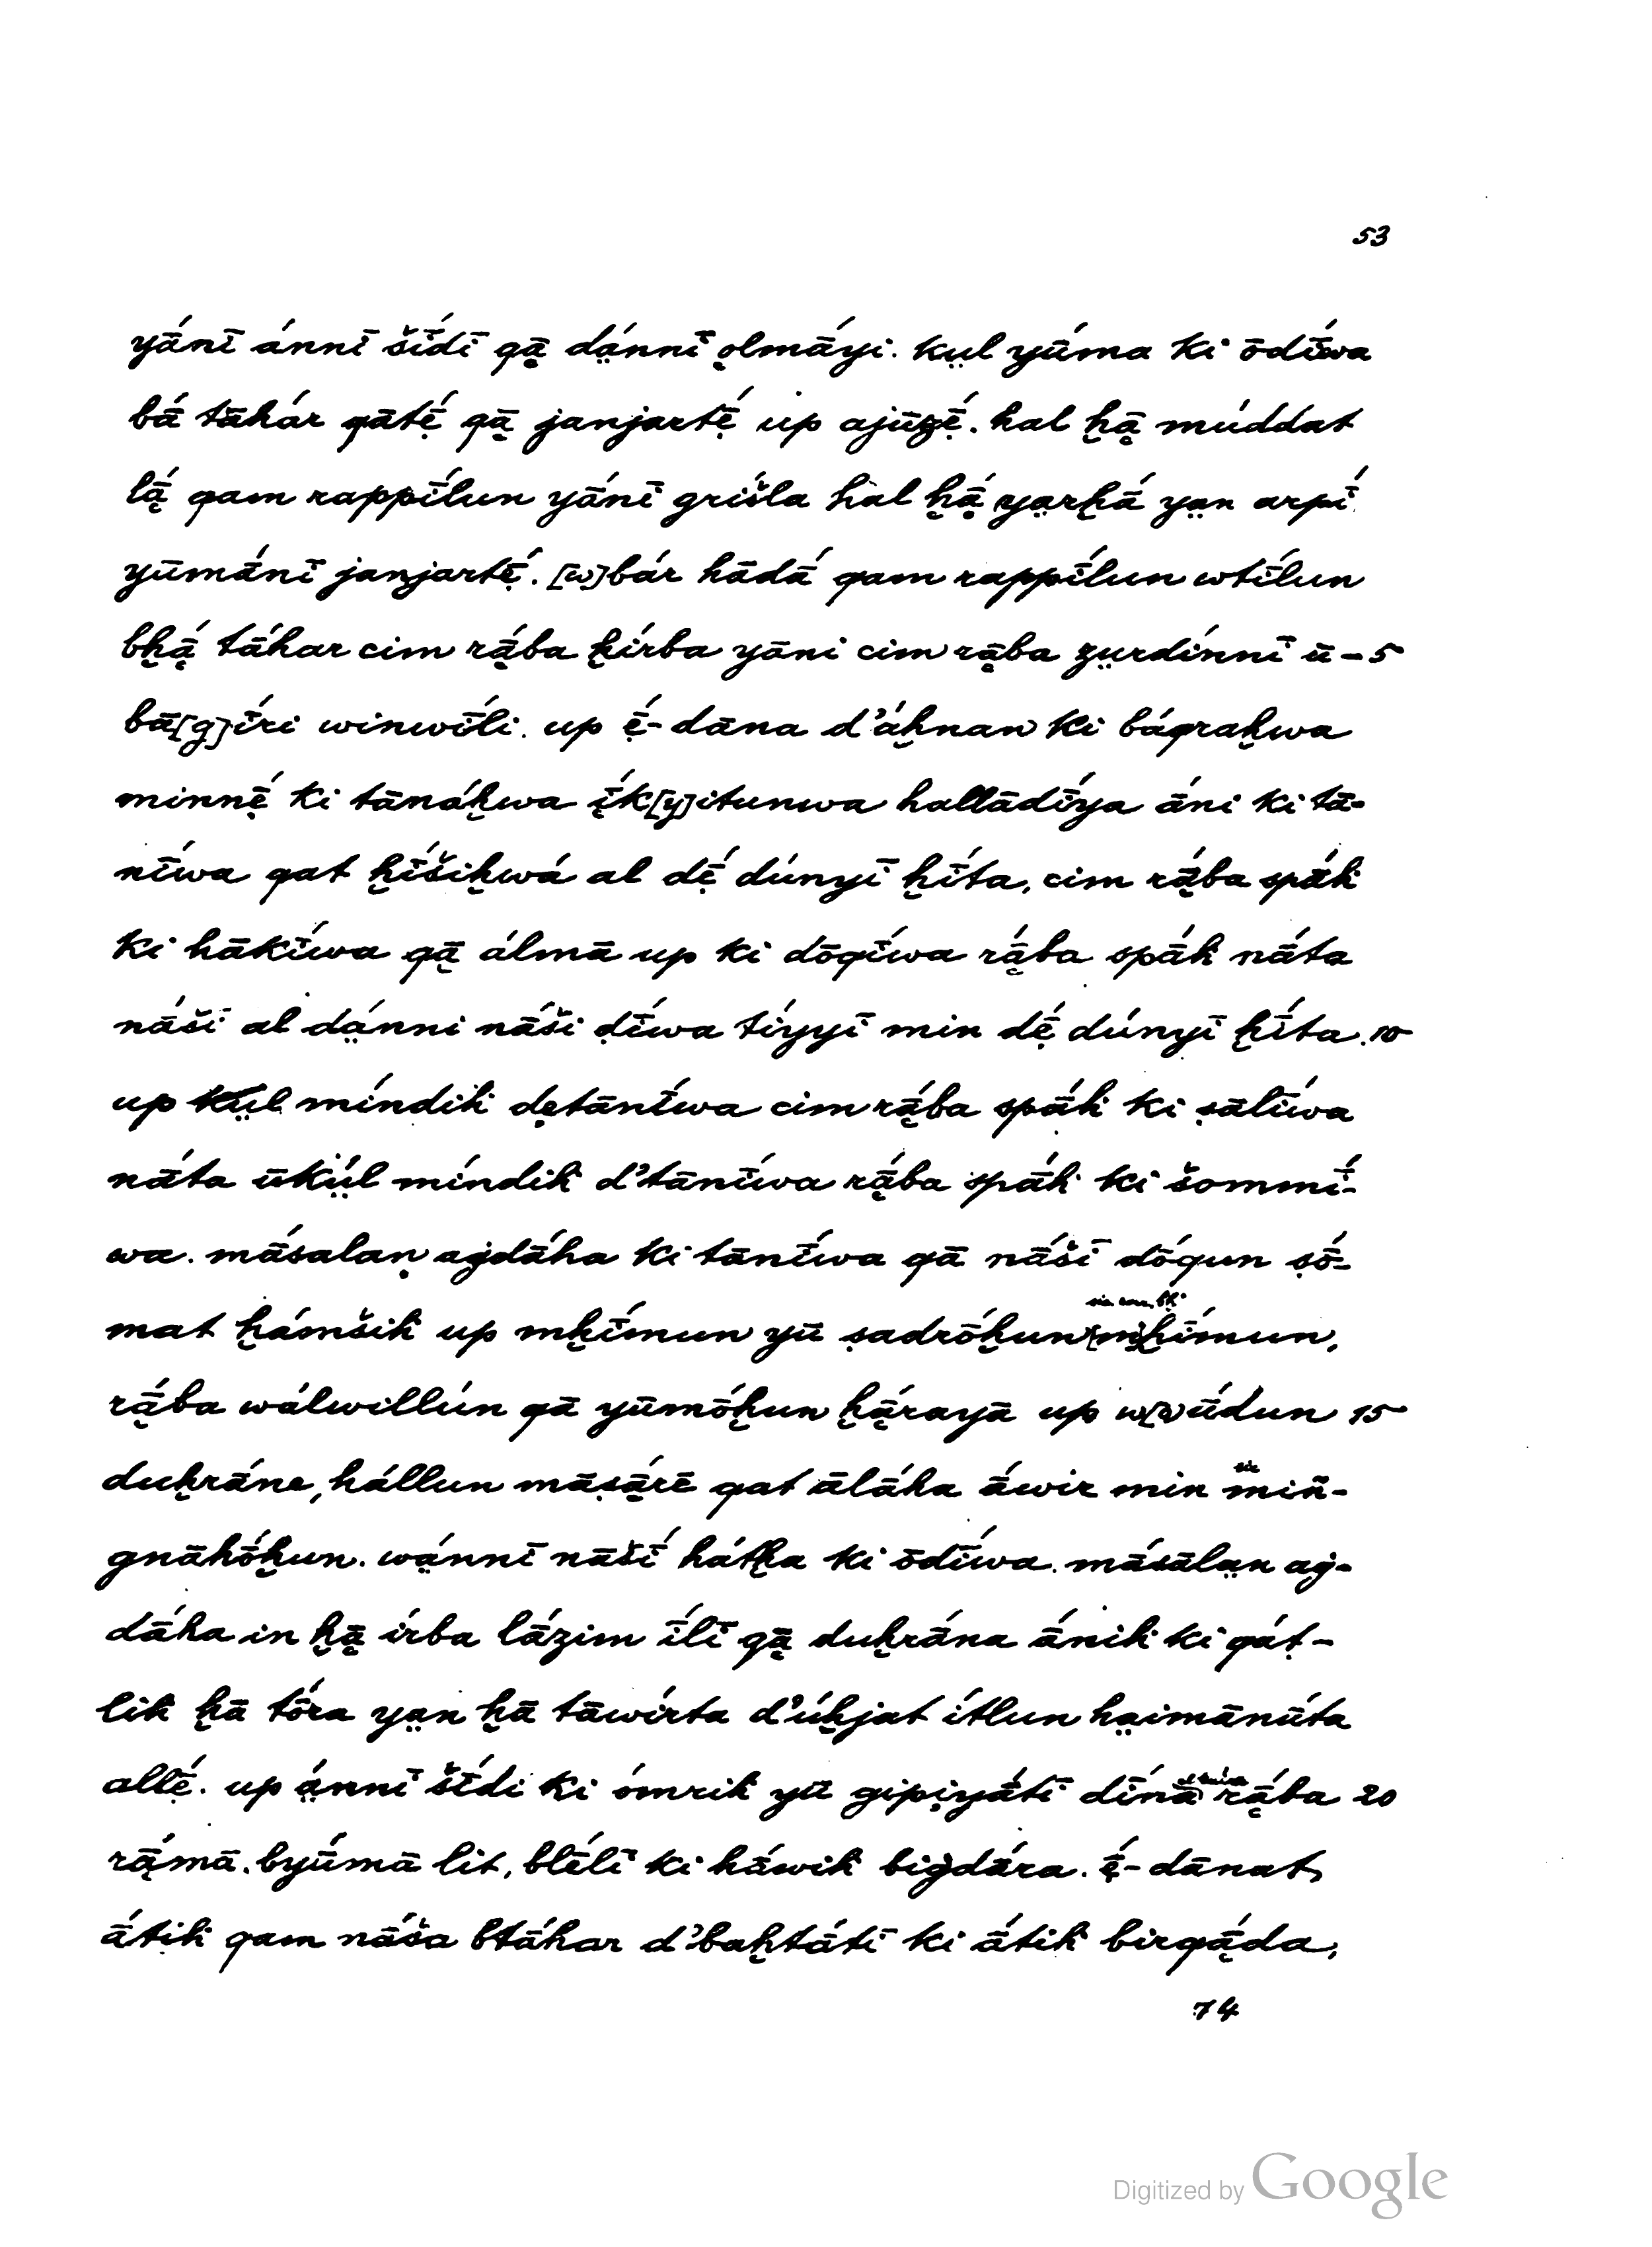 53
yā́nī ánnī šī́dī qā̤ dä́nnī o̤lmā́yi. kṳl yū́ma ki ōdī́wa
bā́ tāhár qātẹ̄́ qā̤ janjartẹ̄́ up ajūzẹ̄́. hal ḫā̤ múddat
lā̤́ qam rappī́lun yā́nī gríšla hal ḫā̤́ ya̤rḫā́ ya̤n arpí
yūmā́nī janjartẹ̄́. [w]bár hādā́ qam rappī́lun wtī́lun
bḫā̤́ tā́har cim rā̤́ba ḫírba yāni cim rā̤ba zṳrdínnī ū- 5
bā[g]ī́ri winwī́li. up ẹ̄́-dāna d'áḫnan ki báqraḫwa
minnẹ̄́ ki tānáḫwa ī̤́k[y]itunwa hallādī́ya āni ki tā-
nī́wa qat ḫī́šiḫwá al dẹ̄́ dúnyī ḫī́ta, cim rā̤́ba spā́h
ki hākī́wa qā̤ álmā up ki dōqī́wa rā̤́ba spā́h nā́ta
nā́šī al dä́nni nā́ši ḍī́wa tíyyī min dẹ̄́ dúnyī ḫī́ta. 10
up kṳl míndih dẹtānī́wa cim rā̤́ba spā́h ki ṣālī́wa
nā́ta ūkṳ́l míndih d'tānī́wa rā̤́ba spā́h ki šommī́-
wa. mā́salaṇ aġdā́ha ki tānī́wa qā nā́šī dṓqun ṣṓ-
mat ḫámših up mḫī́mun yū ṣadrṓḫun [m]ḫī́mun,
rā̤́ba wálwillún qā yūmṓḫun ḫā̤́rayā up w[w]ū́dun 15
duḫrā́ne, hállun māṣā̤́rē qat ālā́ha ā́wir min
sic
miñ-
gnāhṓḫun. wä́nnī nāšī́ hátḫa ki ōdī́wa. mā́sāla̤n aġ-
dā́ha in ḫā̤ írba lā́zim ī́lī qā̤ duḫrā́na ā́nih ki qáṭ-
lih ḫā tṓra ya̤n ḫā tāwírta d'úḫjat ítlun ha̤imānū́ta
allẹ̄́. up ä́nnī šī́di ki ómrih yū gipiyā́tī dī́nā rā̤́ba 20
rā̤́mā. byū́mā lit, blḗlī ki hā́wih biġdā́ra. ẹ̄́-dānat
ā́tih qam nā́ša btā́har d'baḫtā́tī ki ā́tih birqā̤́da,
74
Digitized by Google